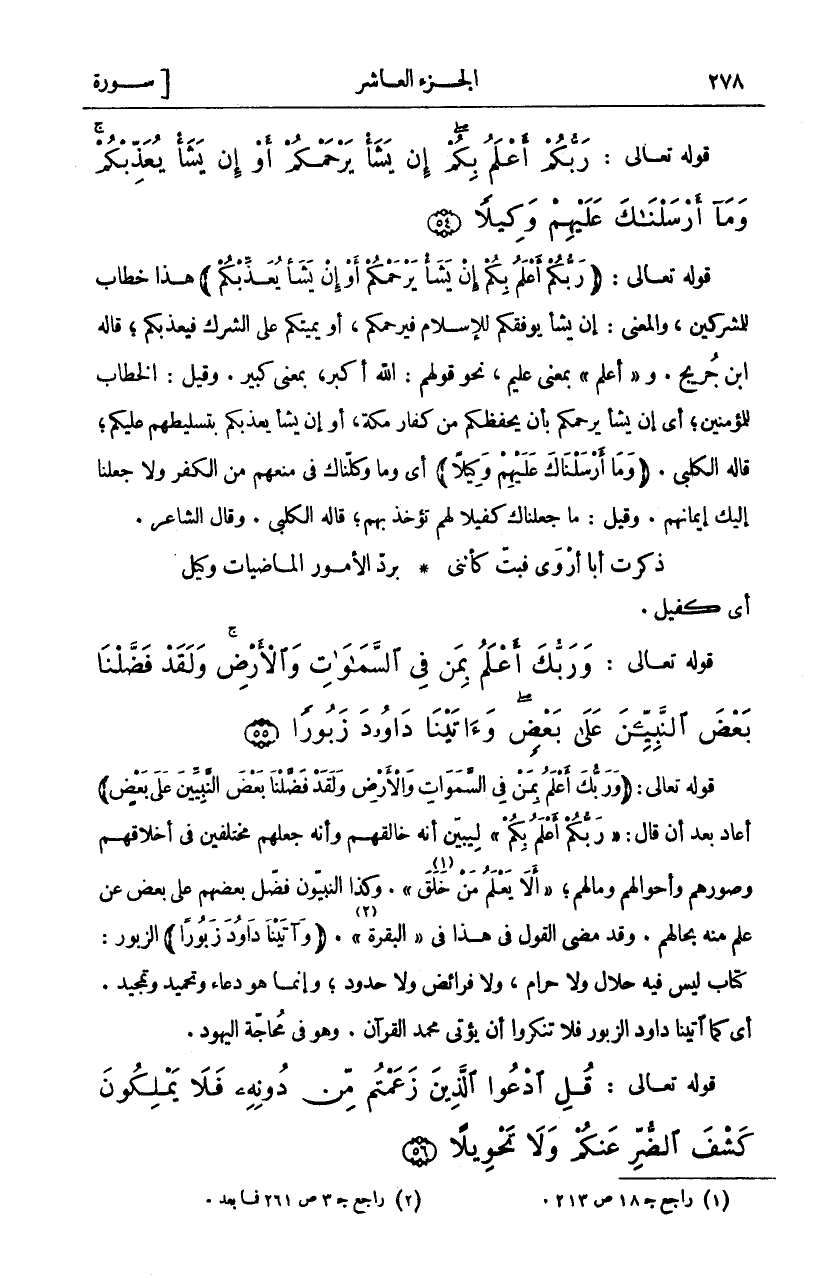 ٢٧٨ الجزء العاشر [ سورة
قوله تعالى : رَبُّكُمْ أَعْلَمُ بِكُمْ ۖ إِن يَشَأْ يَرْحَمْكُمْ أَوْ إِن يَشَأْ يُعَذِّبْكُمْ ۚ
وَمَآ أَرْسَلْنَـٰكَ عَلَيْهِمْ وَكِيلًا ٥٤
قوله تعالى : ﴿ رَبُّكُمْ أَعْلَمُ بِكُمْ إِنْ يَشَأْ يَرْحَمْكُمْ أَوْ إِنْ يَشَأْ يُعَذِّبْكُمْ ﴾ هذا خطاب
للمشركين ، والمعنى : إن يشأ يوفقكم للإسلام فيرحمكم ، أو يميتكم على الشرك فيعذبكم ؛ قاله
ابن جُريج . و « أعلم » بمعنى عليم ، نحو قولهم : الله أكبر، بمعنى كبير . وقيل : الخطاب
للمؤمنين؛ أى إن يشأ يرحمكم بأن يحفظكم من كفار مكة، أو إن يشأ يعذبكم بتسليطهم عليكم؛
قاله الكلبى . ﴿ وَمَا أَرْسَلْنَاكَ عَلَيْهِمْ وَكِيلًا ﴾ أى وما وكلّناك فى منعهم من الكفر ولا جعلنا
إليك إيمانهم . وقيل : ما جعلناك كفيلا لهم تؤخذ بهم؛ قاله الكلبى . وقال الشاعر .
ذكرت أبا أرْوَى فبتّ كأننى * بردّ الأمور الماضيات وكيل
أى كفيل .
قوله تعالى : وَرَبُّكَ أَعْلَمُ بِمَن فِى ٱلسَّمَـٰوَٰتِ وَٱلْأَرْضِ ۚ وَلَقَدْ فَضَّلْنَا
بَعْضَ ٱلنَّبِيِّـۧنَ عَلَىٰ بَعْضٍ ۖ وَءَاتَيْنَا دَاوُۥدَ زَبُورًا ٥٥
قوله تعالى: ﴿وَرَبُّكَ أَعْلَمُ بِمَنْ فِى السَّمَوَاتِ وَالْأَرْضِ وَلَقَدْ فَضَّلْنَا بَعْضَ النَّبِيِّينَ عَلَى بَعْضٍ﴾
أعاد بعد أن قال: « رَبُّكُمْ أَعْلَمُ بِكُمْ » ليبيّن أنه خالقهم وأنه جعلهم مختلفين فى أخلاقهم
وصورهم وأحوالهم ومالهم؛ « أَلَا يَعْلَمُ مَنْ خَلَقَ(١) » . وكذا النبيّون فضّل بعضهم على بعض عن
علم منه بحالهم . وقد مضى القول فى هذا فى « البقرة(٢) » . ﴿ وَآتَيْنَا دَاوُدَ زَبُورًا ﴾ الزبور :
كتاب ليس فيه حلال ولا حرام ، ولا فرائض ولا حدود ؛ وإنما هو دعاء وتحميد وتمجيد .
أى كما آتينا داود الزبور فلا تنكروا أن يؤتى محمد القرآن . وهو فى مُحاجّة اليهود .
قوله تعالى : قُلِ ٱدْعُوا ٱلَّذِينَ زَعَمْتُم مِّن دُونِهِۦ فَلَا يَمْلِكُونَ
كَشْفَ ٱلضُّرِّ عَنكُمْ وَلَا تَحْوِيلًا ٥٦
(١) راجع جـ ١٨ ص ٢١٣ . (٢) راجع جـ ٣ ص ٢٦١ فما بعد .